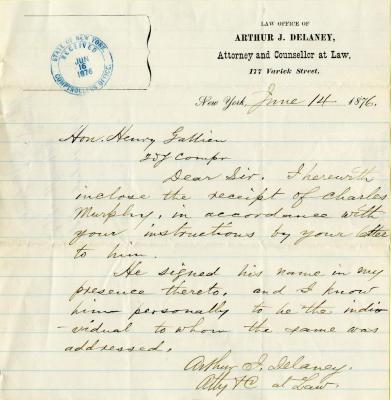 STATE OF NEW YORK
RECEIVED
JUN
16
1876
COMPTROLLERS OFFICE
LAW OFFICE OF
ARTHUR J. DELANEY,
Attorney and Counsellor at Law,
177 Varick Street,
New York, June 14 1876.
Hon. Henry Gallien
2df Compr
Dear Sir. I herewith
inclose the receipt of Charles
Murphy, in accordance with
your instructions by your letter
to him.
He signed his name in my
presence thereto, and I know
him personally to be the indi
-vidual to whom the same was
addressed.
Arthur J. Delaney.
Atty & C. at Law.